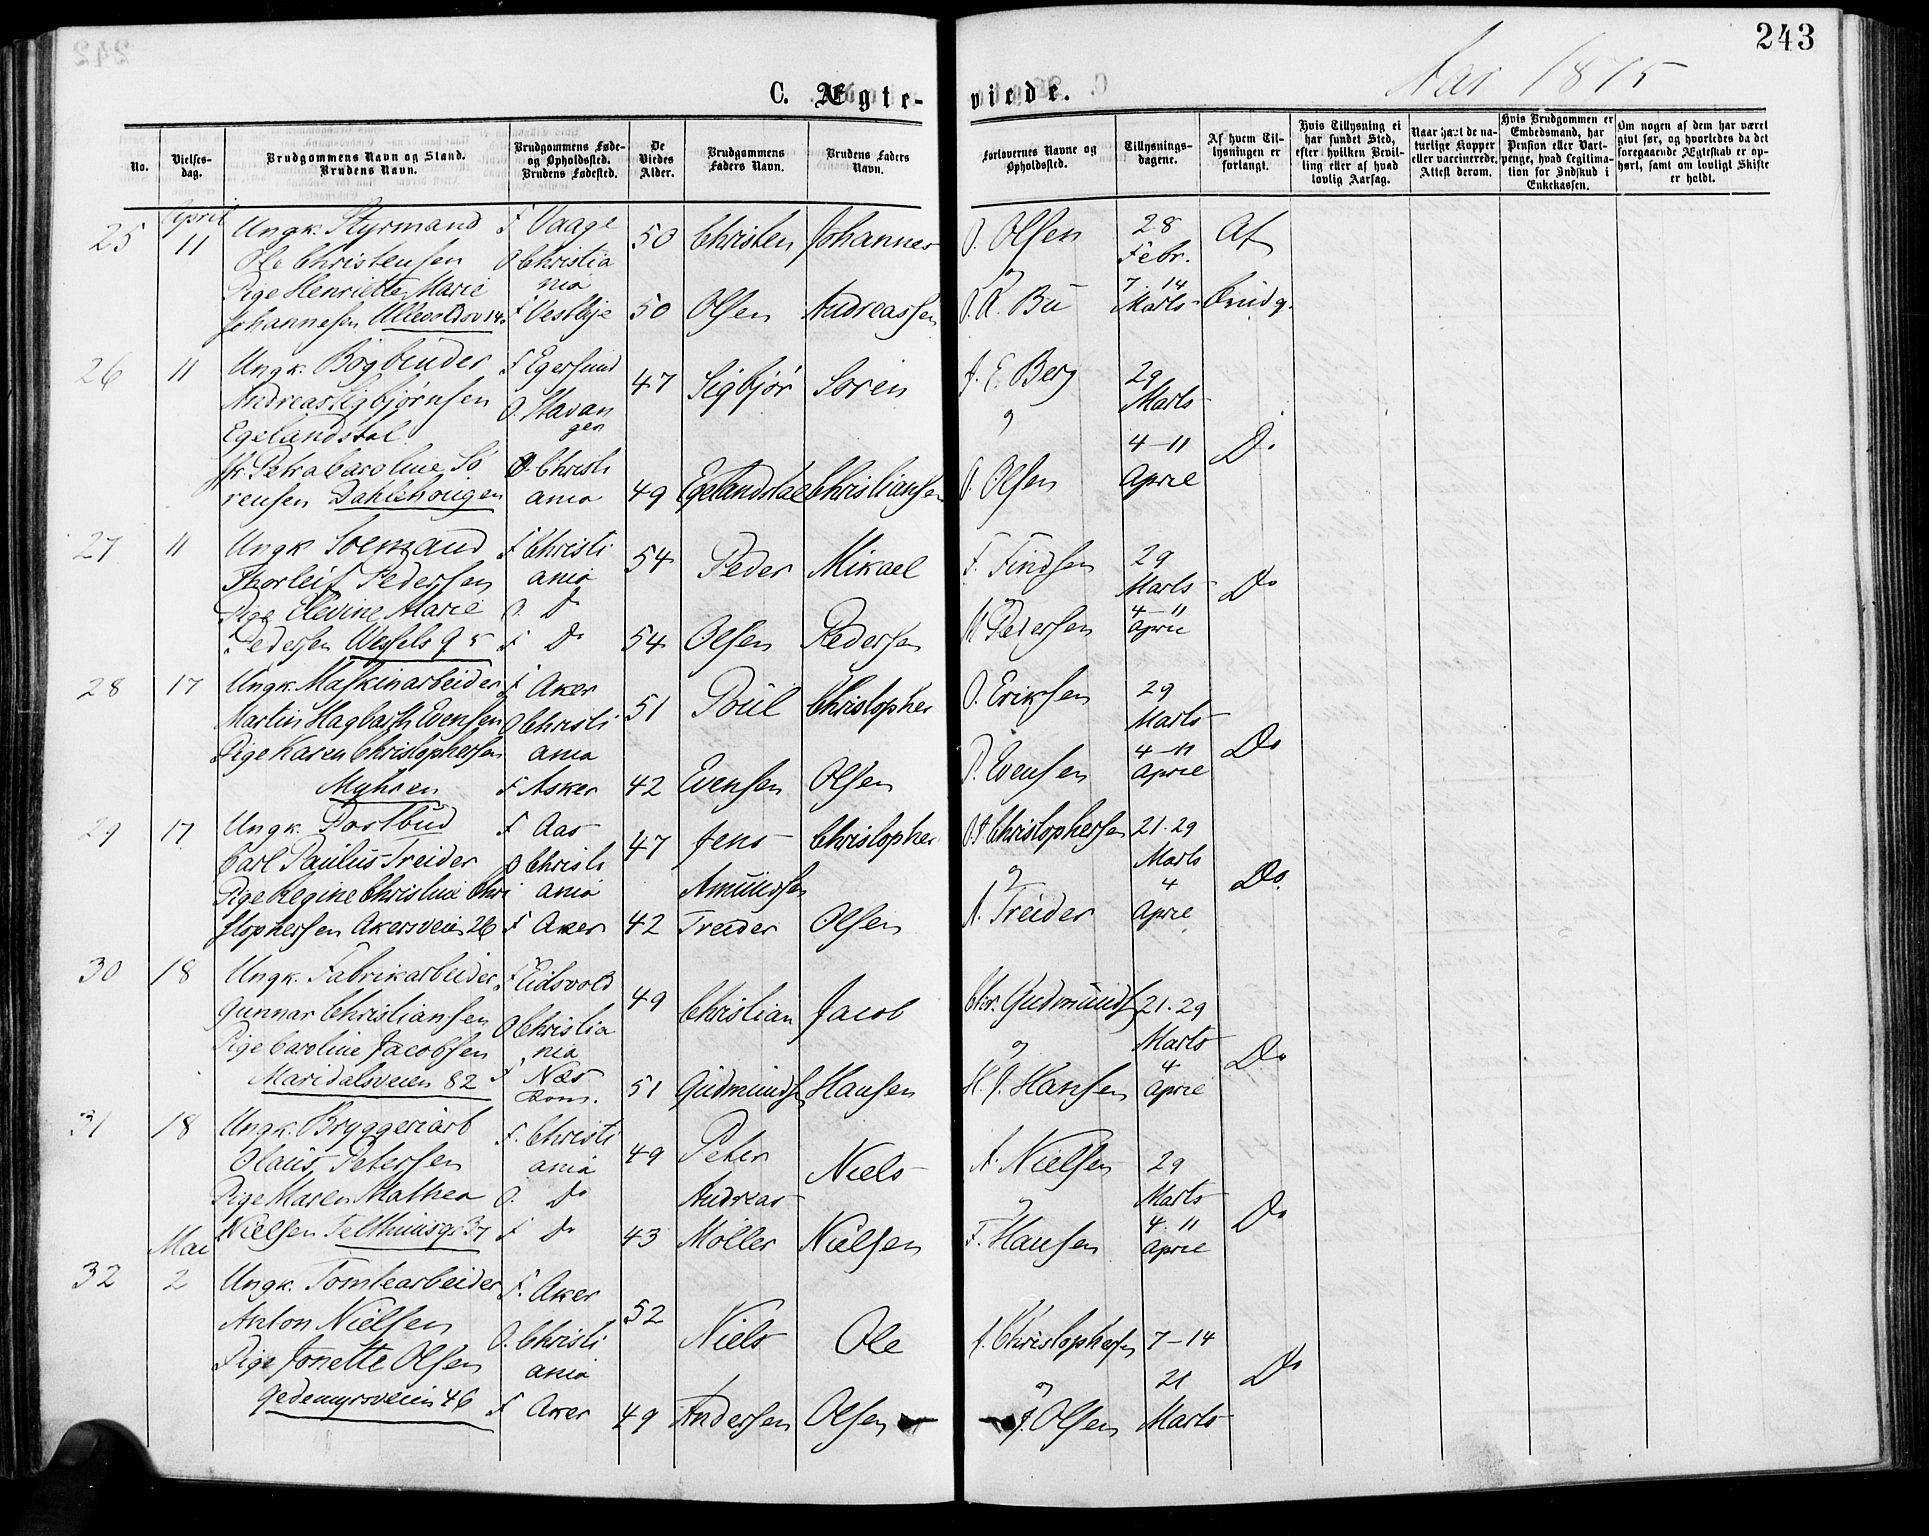 243
Aar 1875
C. Ægte-
viede.
No.
Vielses-
dag.
Brudgommens Navn og Stand.
Brudens Navn.
Brudgommens Føde-
og Opholdssted.
Brudens Fødested.
De
Viedes
Alder.
Brudgommens
Faders Navn.
Brudens Faders
Navn.
Forlovernes Navne og
Opholdssted.
Tillysnings-
dagene.
Af hvem Til-
lysningen er
forlangt.
Hvis Tillysning ei
har fundet Sted,
efter hvilken Bevil-
ling eller af hvad
lovlig Aarsag.
Naar havt de na-
turlige Kopper
eller vaccinerede,
Attest derom.
Hvis Brudgommen er
Embedsmand, har
Pension eller Vart-
penge, hvad Legitima-
tion for Indskud i
Enkekassen.
Om nogen af dem har været
givt før, og hvorledes da det
foregaaende Ægteskab er op-
hørt, samt om lovligt Skifte
er holdt.
25
April
11
Ungk. Styrmand
Ole Christensen
Pige Henriette Marie
Johannesen Ullevoldsv 14
F Vaage
O Christia
nia
F Vestbye
50
50
Christen
Olsen
Johannes
Andreassen
O. Olsen
og
O. A. Bu
28
Febr.
7. 14
Marts
Af
Brudg.
26
11
Ungk. Bogbinder
Andreas Sigbjørnsen
Egelandsdal
Jfr. Petra Caroline Sö
rensen Dahlehougen
F Egersund
O. Stavan
ger
O. Christi
ania
47
49
Sigbjør
Egelandsdal
Soren
Christiansen
J. E. Berg
og
O. Olsen
29
Marts
4-11
April
Do
27
11
Ungk Söemand
Thorleif Pedersen
Pige Elevine Marie
Pedersen Wessels g 5
F Christi
ania
O. Do
F Do
54
54
Peder
Olsen
Mikael
Pedersen
F. Findsen
og
M Pedersen
29
Marts
4-11
April
Do
28
17
Ungk. Maskinarbeider
Martin Hagbarth Evensen
Pige Karen Christophersen
Myhren
F Aker
O Christi
ania
F Asker
51
42
Poul
Evensen
Christopher
Olsen
O. Eriksen
P. Evensen
29
Marts
4-11
April
Do
29
17
Ungk. Postbud
Carl Paulus Treider
Pige Regine Christine Chri
stophersen Akersveien 26
F Aas
O Christi
ania
F Aker
47
42
Jens
Amundsen
Treider
Christopher
Olsen
Christophersen
og
A. Treider
21. 29
Marts
4
April
Do.
30
18
Ungk. Fabrikarbeider
Gunnar Christiansen
Pige Caroline Jacobsen
Maridalsveien 82
F Eidsvold
O Christia
nia
F Næs
Rom.
49
51
Christian
Gudmunds
Jacob
Hansen
Chr. Gudmunds
og
H. J. Hansen
21. 29
Marts
4
April
Do
31
18
Ungk. Bryggeriarb
Olaus Petersen
Pige Maren Mathea
Nielsen Telthusgd 37
F. Christi
ania
O. Do
F Do
49
43
Peter
Andreas
Moller
Niels
Nielsen
A. Nielsen
og
F. Hansen
29
Marts
4. 11
April
Do
32
Mai
2
Ungk. Tomtearbeider
Anton Nielsen
Pige Jonette Olsen
Gedemyrsveien 46
F. Aker
O. Christi
ania
F Aker
52
49
Niels
Andersen
Ole
Olsen
J. Christophersen
og
J. Olsen
7-14
21
Marts
Do